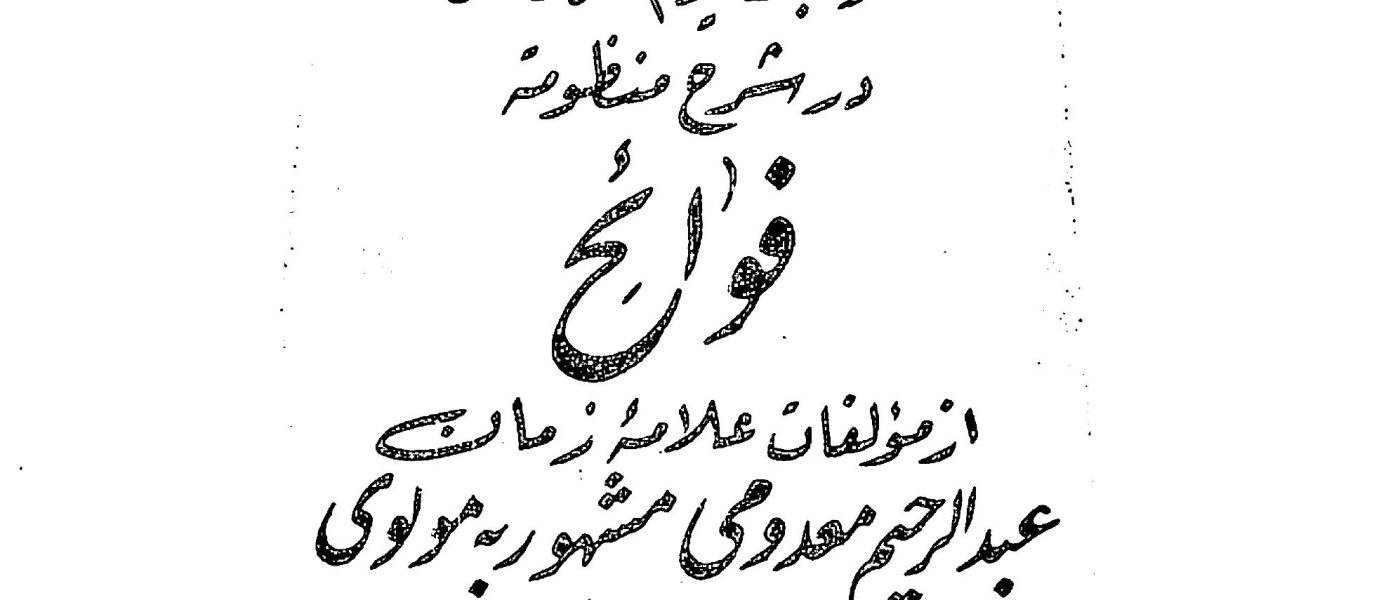 در شرح منظومة
فوائح
از مؤلفات علامۀ زمان
عبدالرحیم معدومی مشهور به مولوی